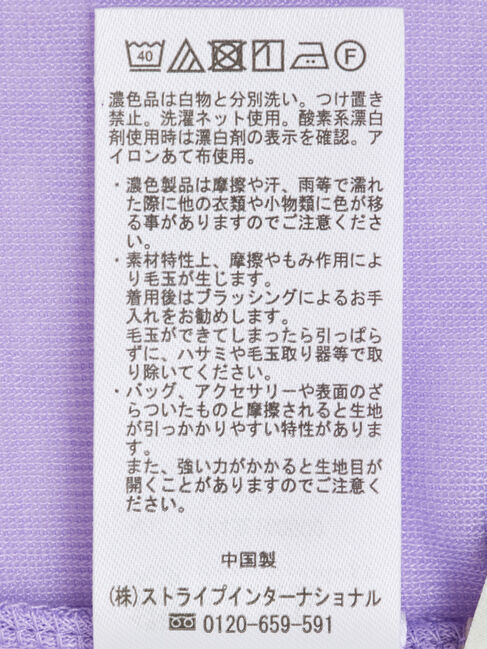 40 F
濃色品は白物と分別洗い。つけ置き
禁止。洗濯ネット使用。酸素系漂白
剤使用時は漂白剤の表示を確認。ア
イロンあて布使用。
・濃色製品は摩擦や汗、雨等で濡れ
た際に他の衣類や小物類に色が移
る事がありますのでご注意くださ
い。
・素材特性上、摩擦やもみ作用によ
り毛玉が生じます。
着用後はブラッシングによるお手
入れをお勧めします。
毛玉ができてしまったら引っぱら
ずに、ハサミや毛玉取り器等で取
り除いてください。
・バッグ、アクセサリーや表面のざ
らついたものと摩擦されると生地
が引っかかりやすい特性がありま
す。
また、強い力がかかると生地目が
開くことがありますのでご注意く
ださい。
中国製
(株)ストライプインターナショナル
0120-659-591